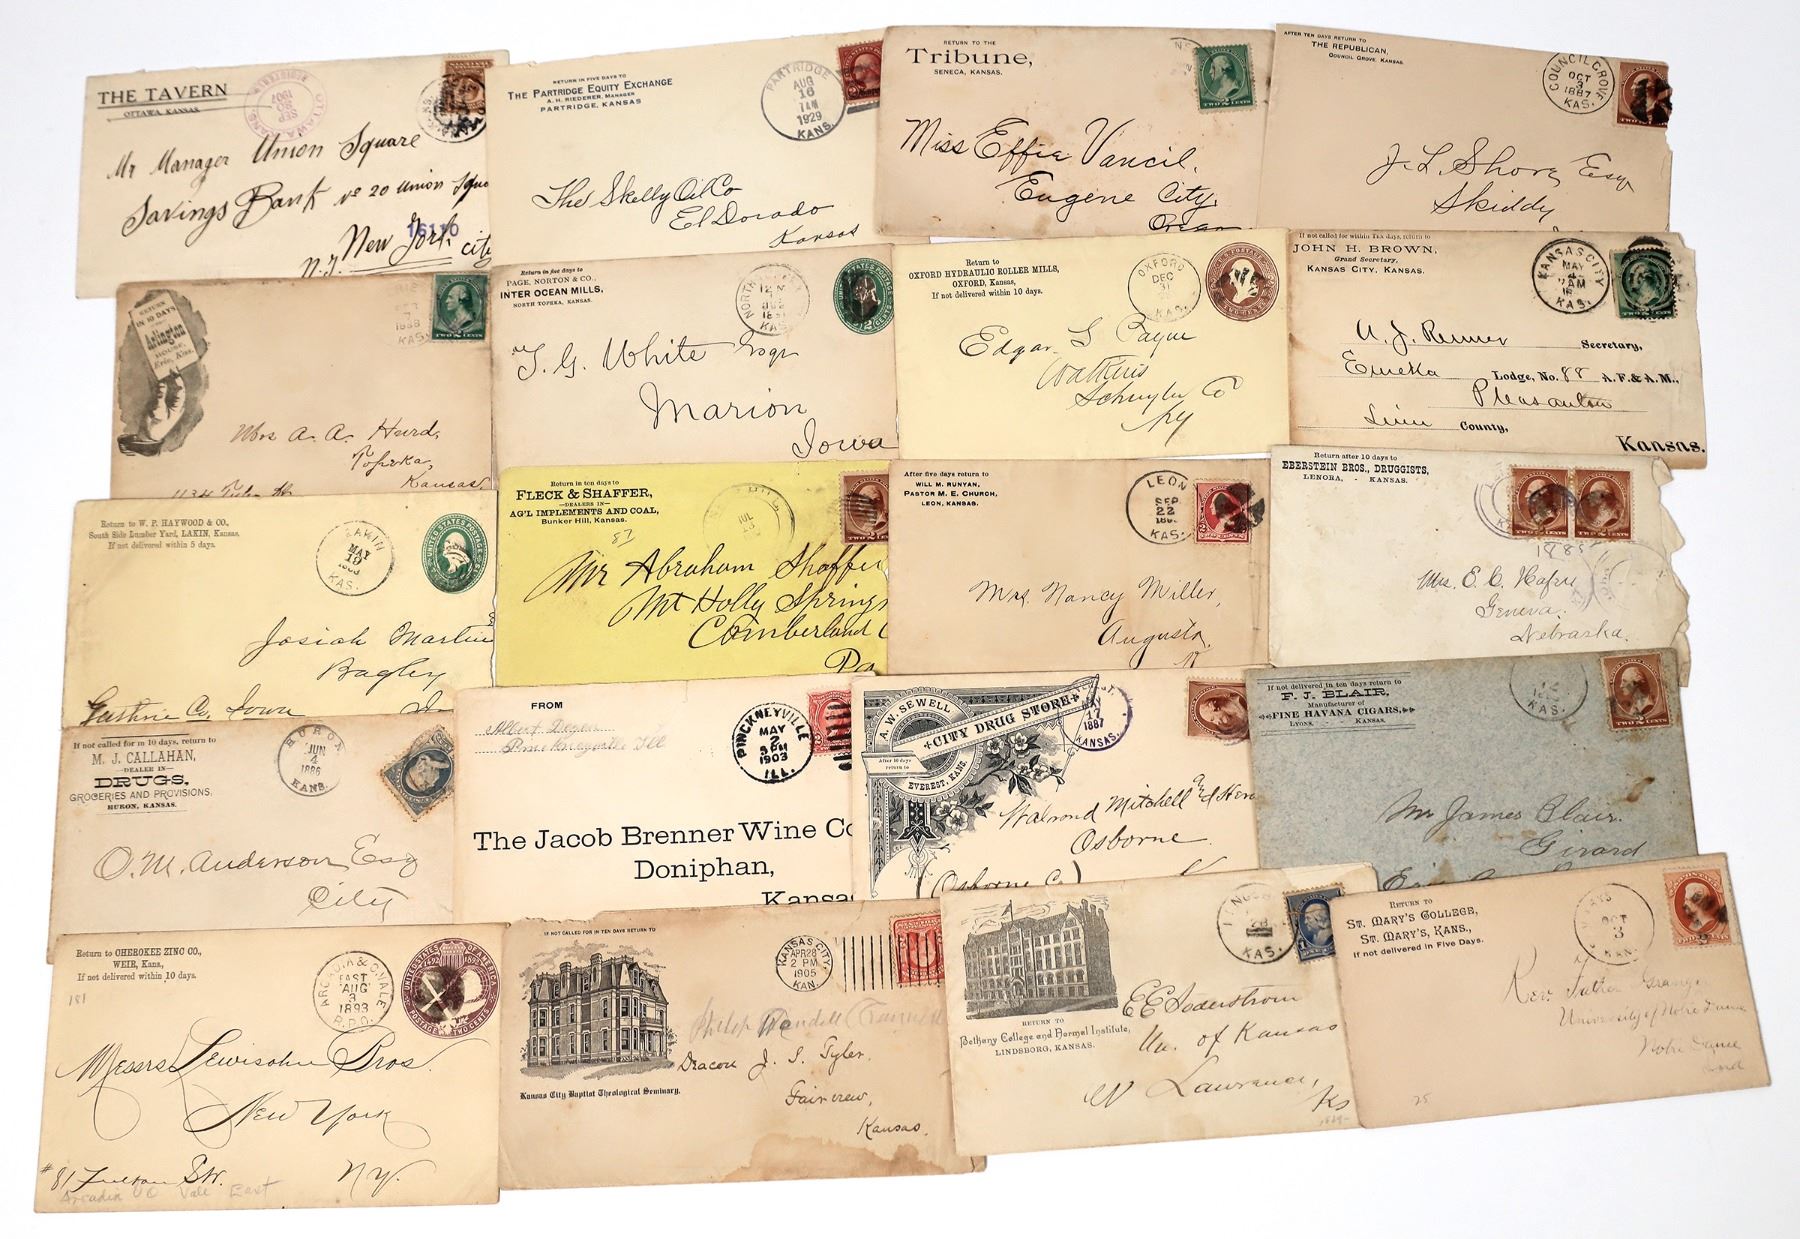 THE TAVERN
OTTAWA, KANSAS
OTTAWA, KANS.
SEP
1907
REGISTERED
Mr Manager Union Square
Savings Bank No 20 Union Squa
New York city
N.Y.
16110
RETURN IN FIVE DAYS TO
THE PARTRIDGE EQUITY EXCHANGE
A. H. RIEDERER, MANAGER
PARTRIDGE, KANSAS
PARTRIDGE
AUG
16
7 AM
1929
KANS.
The Skelly Oil Co
El Dorado
Kansas
RETURN TO THE
Tribune,
SENECA, KANSAS.
TWO 2 CENTS
Miss Effie Vancil.
Eugene City,
Oregon
AFTER TEN DAYS RETURN TO
THE REPUBLICAN,
COUNCIL GROVE, KANSAS.
COUNCIL GROVE
OCT
1887
KAS.
J. L. Shorg Esq
Skiddy
RETURN
IN 10 DAYS
Arlington
HOUSE,
Erie, Kas.
1888
KAS.
TWO 2 CENTS
Mrs A. A. Hurd,
Topeka,
Kansas
1134 Tyler St
Return in five days to
PAGE, NORTON & CO.,
INTER OCEAN MILLS,
NORTH TOPEKA, KANSAS.
NORTH TOPEKA
12 M
KAS.
T. G. White Esqr
Marion
Iowa
Return to
OXFORD HYDRAULIC ROLLER MILLS,
OXFORD, Kansas,
If not delivered within 10 days.
OXFORD
DEC
31
KAS.
Edgar L Payne
Watkins
Schuyler Co
NY
If not called for within Ten days, return to
JOHN H. BROWN,
Grand Secretary,
KANSAS CITY, KANSAS.
KANSAS CITY
MAY
4
7 AM
KAS.
Secretary,
Eureka Lodge, No. 88 A. F. & A. M.,
Pleasanton
Linn County,
Kansas.
Return to W. P. HAYWOOD & CO.,
South Side Lumber Yard, LAKIN, Kansas,
If not delivered within 5 days.
LAKIN
MAY
19
KAS.
Josiah Martin
Bagley
Guthrie Co, Iowa
Return in ten days to
FLECK & SHAFFER,
—DEALERS IN—
AG'L IMPLEMENTS AND COAL,
Bunker Hill, Kansas.
87
JUL
Mr Abraham Shaffer
Mt Holly Springs
Cumberland C
Pa
After five days return to
WILL M. RUNYAN,
PASTOR M. E. CHURCH,
LEON, KANSAS.
LEON
SEP
22
KAS.
Mrs. Nancy Miller,
Augusta,
Return after 10 days to
EBERSTEIN BROS., DRUGGISTS,
LENORA, - KANSAS.
TWO 2 CENTS
TWO 2 CENTS
Mrs. E. C. Hafer
Geneva.
Nebraska.
If not called for in 10 days, return to
M. J. CALLAHAN,
—DEALER IN—
DRUGS,
GROCERIES AND PROVISIONS,
HURON, KANSAS.
HURON
JUN
4
1886
KANS.
O. M. Anderson Esq
City
FROM
Pinckneyville Ill
PINCKNEYVILLE
MAY
2
5 PM
1903
ILL.
The Jacob Brenner Wine Co
Doniphan,
Kansas
A. W. SEWELL
CITY DRUG STORE
After 10 days
return to
EVEREST, KANS.
MAY
17
1887
KANSAS.
Walrond Mitchell & Heren
Osborne
(Osborne Co)
If not delivered in ten days return to
F. J. BLAIR,
Manufacturer of
FINE HAVANA CIGARS,
LYONS, - KANSAS.
12
KAS.
TWO 2 CENTS
Mr James Blair.
Girard
Return to CHEROKEE ZINC CO.,
WEIR, Kans,
If not delivered within 10 days.
181
ARCADIA & C'VALE
EAST
AUG
3
1893
R.P.O.
UNITED STATES OF AMERICA
1492 1892
POSTAGE TWO CENTS
Messrs Lewisohn Bros.
New York
#81 Fulton Str. N.Y.
Arcadia & C Vale East
IF NOT CALLED FOR IN TEN DAYS RETURN TO
Kansas City Baptist Theological Seminary,
KANSAS CITY,
APR 28
2 PM
1905
KAN.
Deacon J. S. Tyler.
Fairview,
Kansas.
RETURN TO
Bethany College and Normal Institute,
LINDSBORG, KANSAS.
LINDSBORG
28
KAS.
E C Soderstrom
Un. of Kansas
W Lawrence,
Ks
RETURN TO
ST. MARY'S COLLEGE,
ST. MARY'S, KANS.,
If not delivered in Five Days.
OCT
3
KAN.
Rev. Father Granger
University of Notre Dame
Notre Dame
Ind
25